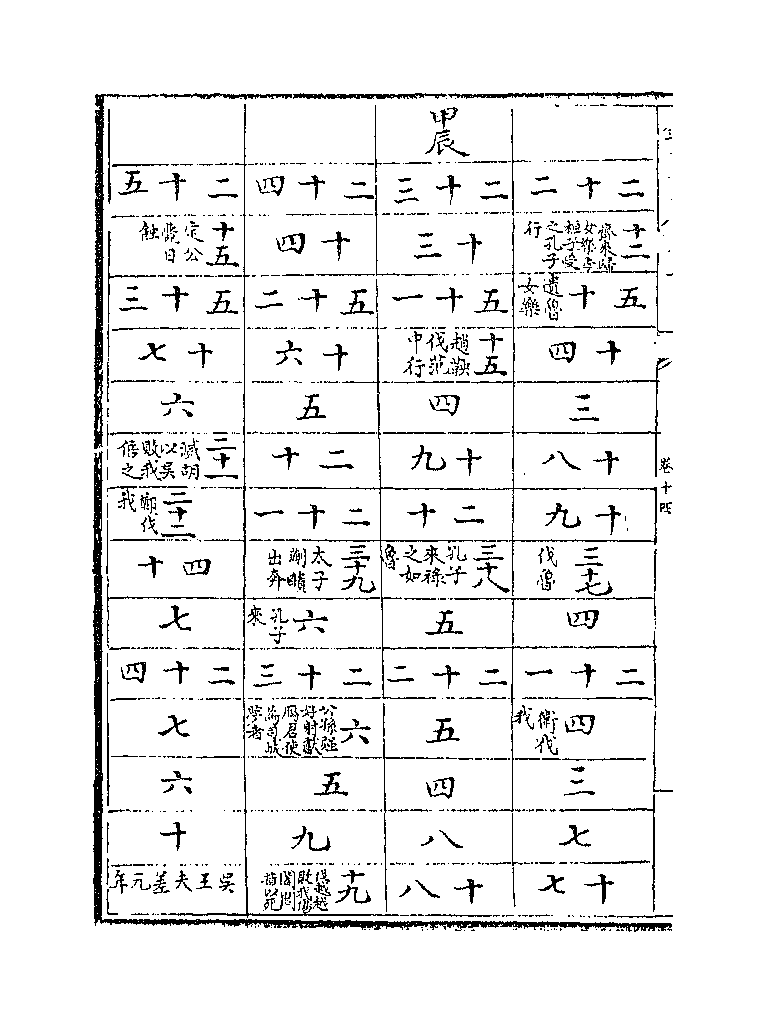 卷十四
二十二
十二
齊來歸
女樂季
桓子受
之孔子
行
五十
遺魯
女樂
十四
三
十八
十九
三十七
伐曹
四
二十一
四
衛伐
我
三
七
十七
甲辰
二十三
十三
五十一
十五
趙鞅
伐范
中行
四
十九
二十
三十八
孔子
來祿
之如
魯
五
二十二
五
四
八
十八
二十四
十四
五十二
十六
五
二十
二十一
三十九
太子
蒯聵
出奔
六
孔子
來
二十三
六
公孫彊
好射獻
鴈君使
為司城
夢者
五
九
十九
伐越越
敗我傷
闔閭
指以死
二十五
十五
定公
薨日
蝕
五十三
十七
六
二十一
滅胡
以吳
敗我
倍之
二十二
鄭伐
我
四十
七
二十四
七
六
十
吳王夫差元年